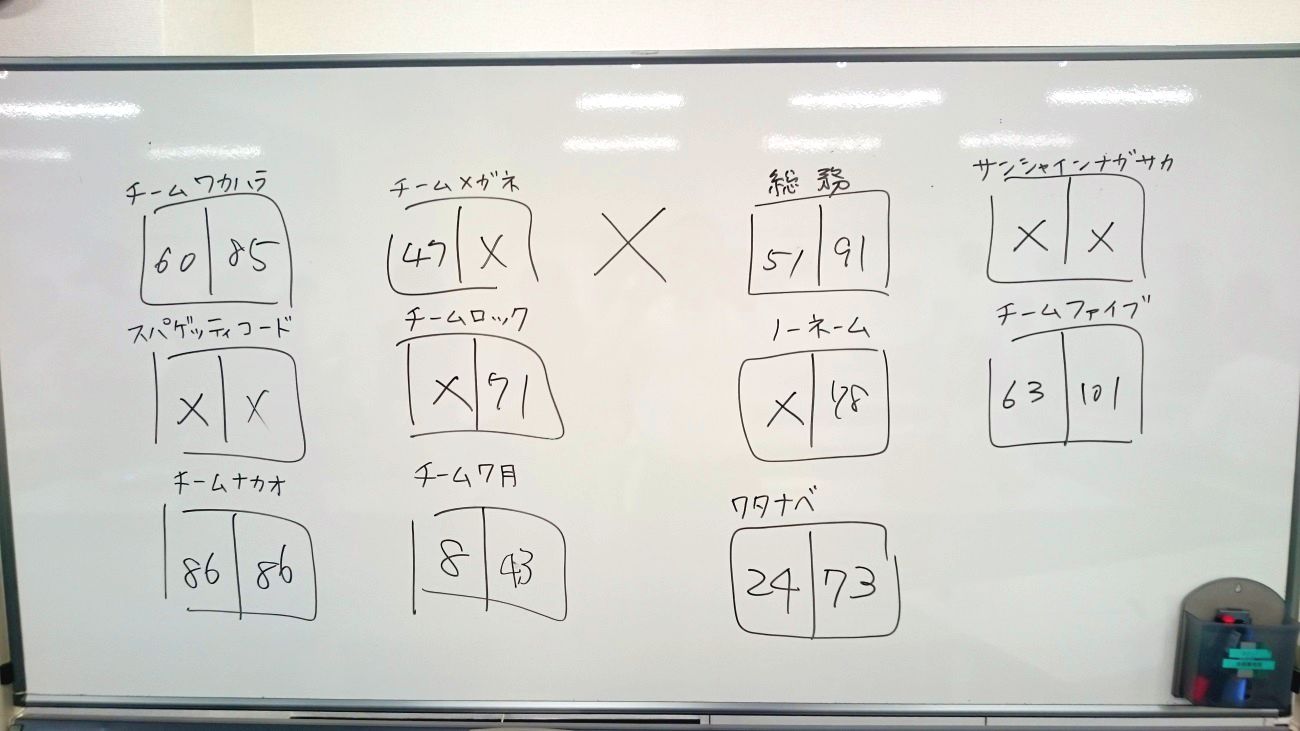 チームワカハラ
60 85
チームメガネ
47 X
X
総務
51 91
サンシャインナガサカ
X X
スパゲッティコード
X X
チームロック
X 71
ノーネーム
X 78
チームファイブ
63 101
チームナカオ
86 86
チーム7月
8 43
ワタナベ
24 73